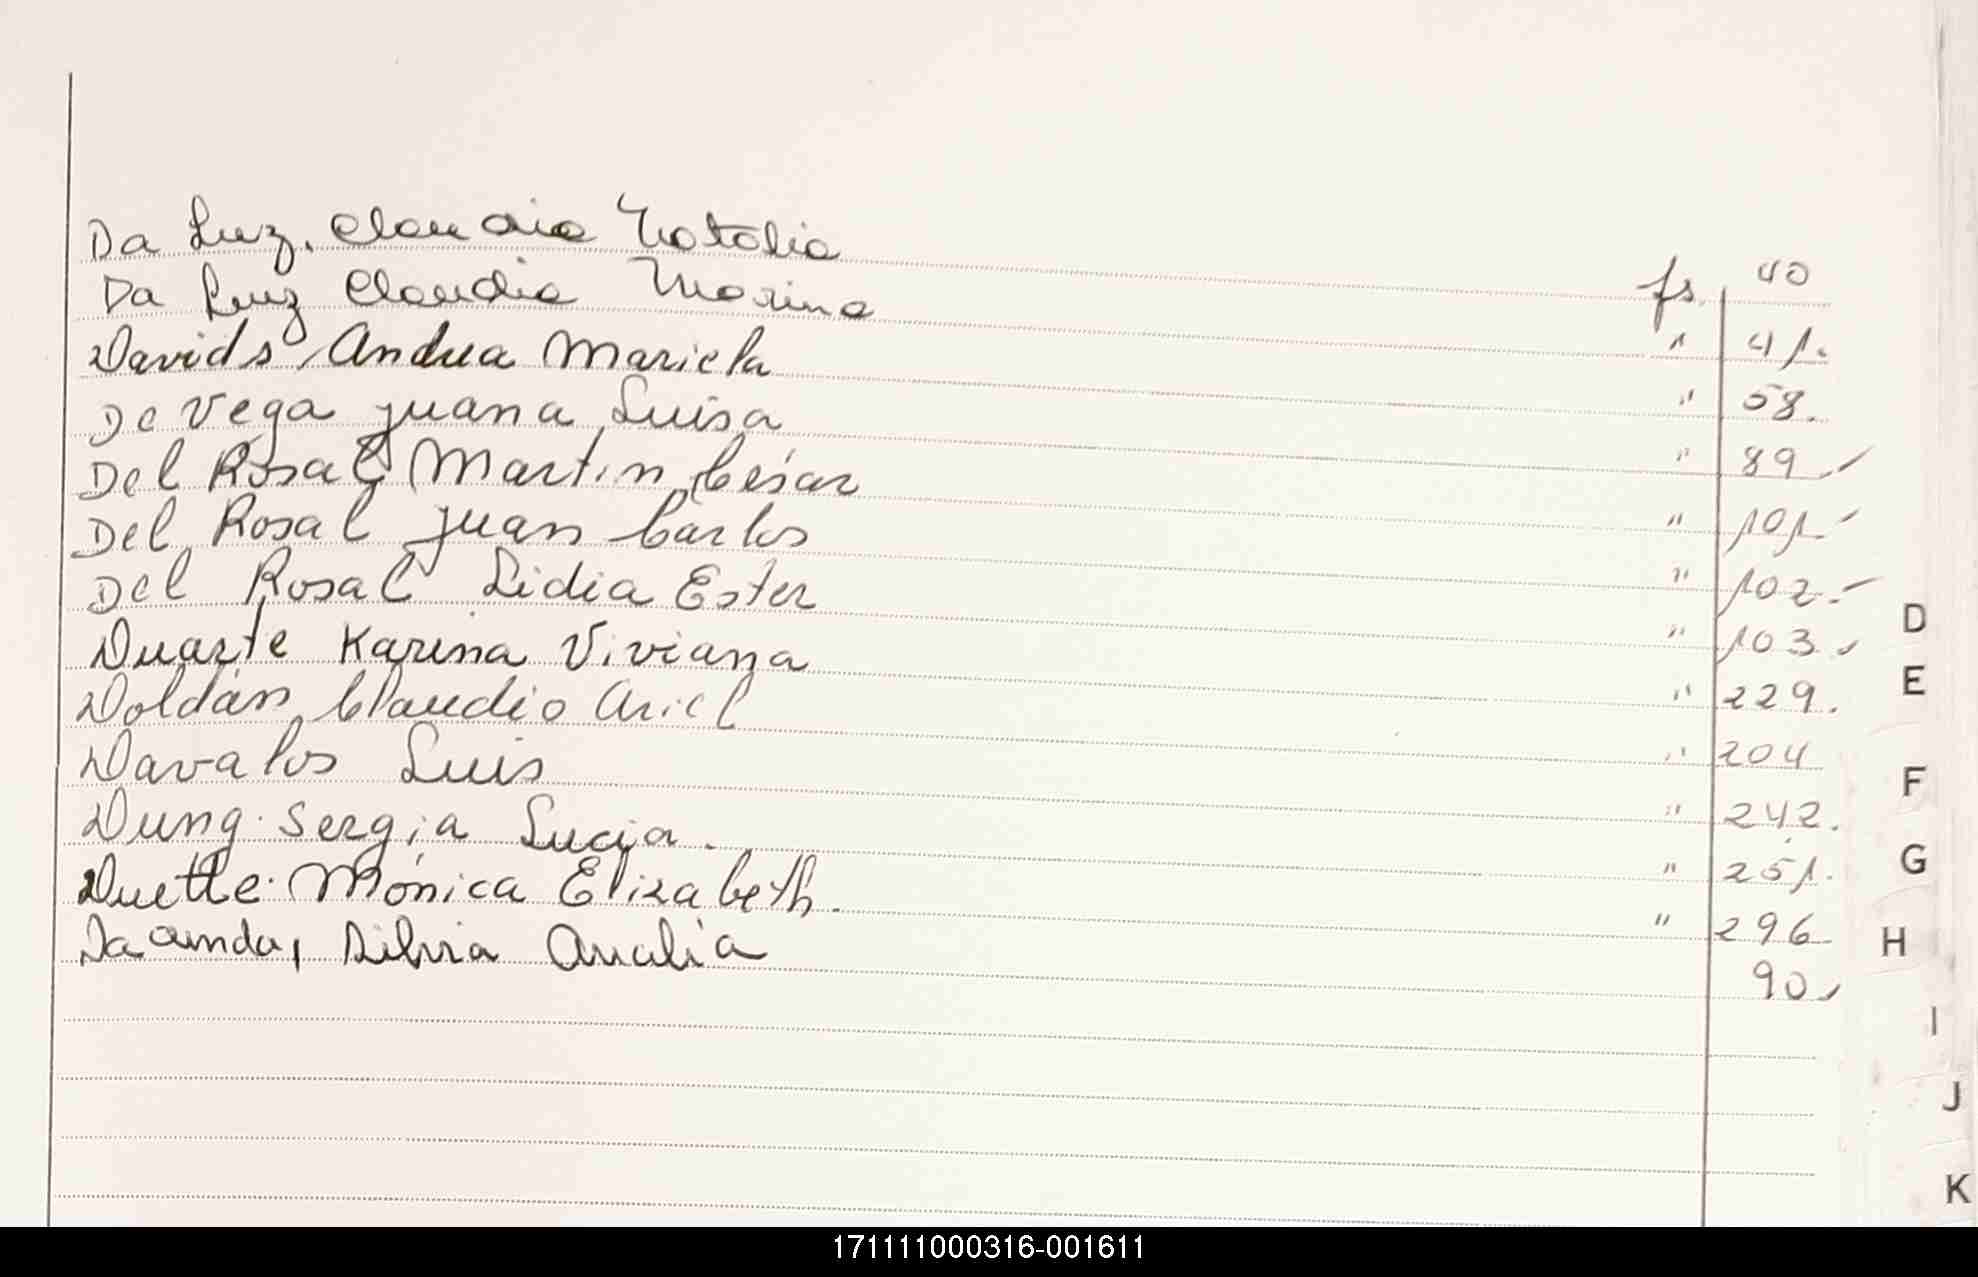 Da Luz, Claudia Natalia fs. 40
Da Luz Claudia Marina " 41.
Davids, Andrea Mariela " 58.
De Vega Juana Luisa " 89
Del Rosal Martin César " 101
Del Rosal Juan Carlos " 102.
Del Rosal Lidia Ester " 103
Duarte Karina Viviana " 229.
Doldán Claudio Ariel " 204
Davalos Luis " 242.
Dung. Sergia Lucia. " 251.
Duette. Mónica Elizabeth. " 296
Silvia Analia 90
D
E
F
G
H
I
J
K
171111000316-001611